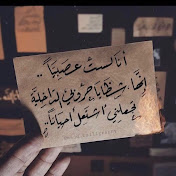 أنا لستُ عصبيًّا..
إنّها شظايا حروبي الداخليّة
تجعلني أشتعل أحيانًا..